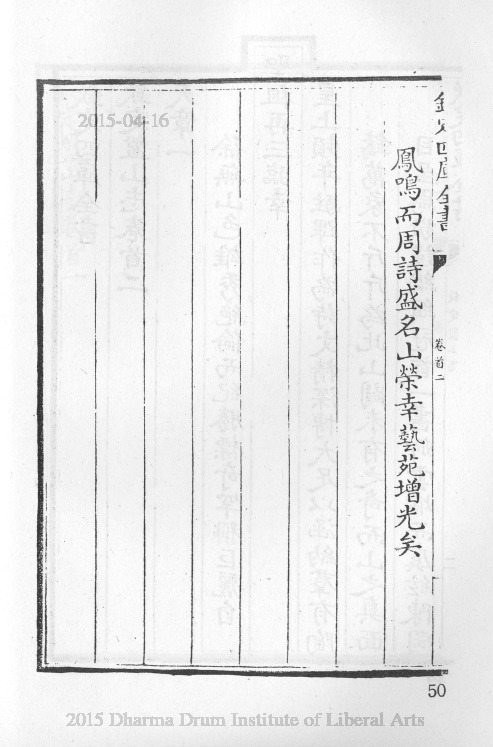 欽定四庫全書
卷首二
鳳鳴而周詩盛名山榮幸藝苑增光矣
2015-04-16
50
2015 Dharma Drum Institute of Liberal Arts